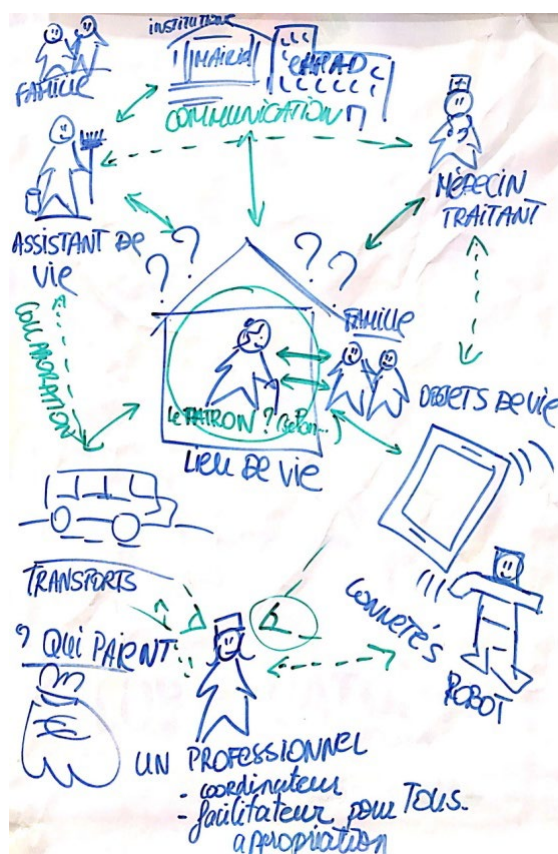 INSTITUTIONS
MAIRIE
EHPAD
FAMILLE
COMMUNICATION
MÉDECIN
TRAITANT
ASSISTANT DE
VIE
? ?
? ?
COLLABORATION
FAMILLE
LE PATRON ? (selon...)
LIEU DE VIE
OBJETS DE VIE
CONNETÉS
ROBOT
TRANSPORTS
? QUI PAIENT
€
UN PROFESSIONNEL
- coordinateur
- facilitateur pour TOUS.
appropriation